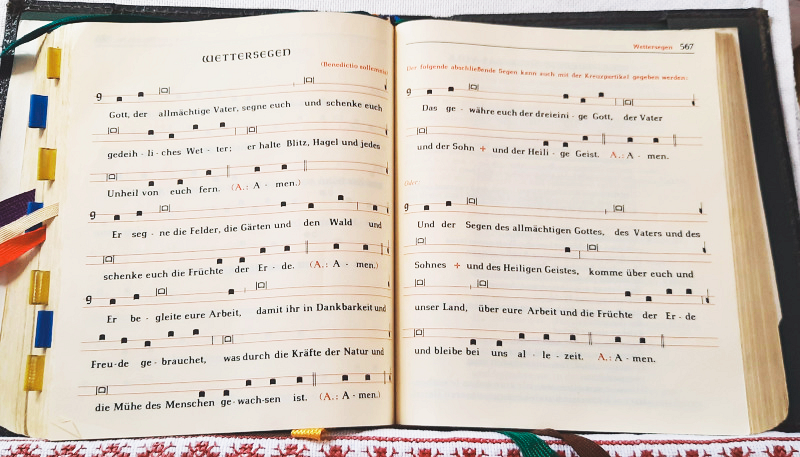 WETTERSEGEN
(Benedictio sollemnis)
Gott, der allmächtige Vater, segne euch und schenke euch
gedeih - li - ches Wet - ter; er halte Blitz, Hagel und jedes
Unheil von euch fern. (A.: A - men.)
Er seg - ne die Felder, die Gärten und den Wald und
schenke euch die Früchte der Er - de. (A.: A - men.)
Er be - gleite eure Arbeit, damit ihr in Dankbarkeit und
Freu-de ge - brauchet, was durch die Kräfte der Natur und
die Mühe des Menschen ge-wach-sen ist. (A.: A - men.)
Wettersegen 567
Der folgende abschließende Segen kann auch mit der Kreuzpartikel gegeben werden:
Das ge - währe euch der dreieini - ge Gott, der Vater
und der Sohn + und der Heili - ge Geist. A.: A - men.
Oder:
Und der Segen des allmächtigen Gottes, des Vaters und des
Sohnes + und des Heiligen Geistes, komme über euch und
unser Land, über eure Arbeit und die Früchte der Er - de
und bleibe bei uns al - le - zeit. A.: A - men.